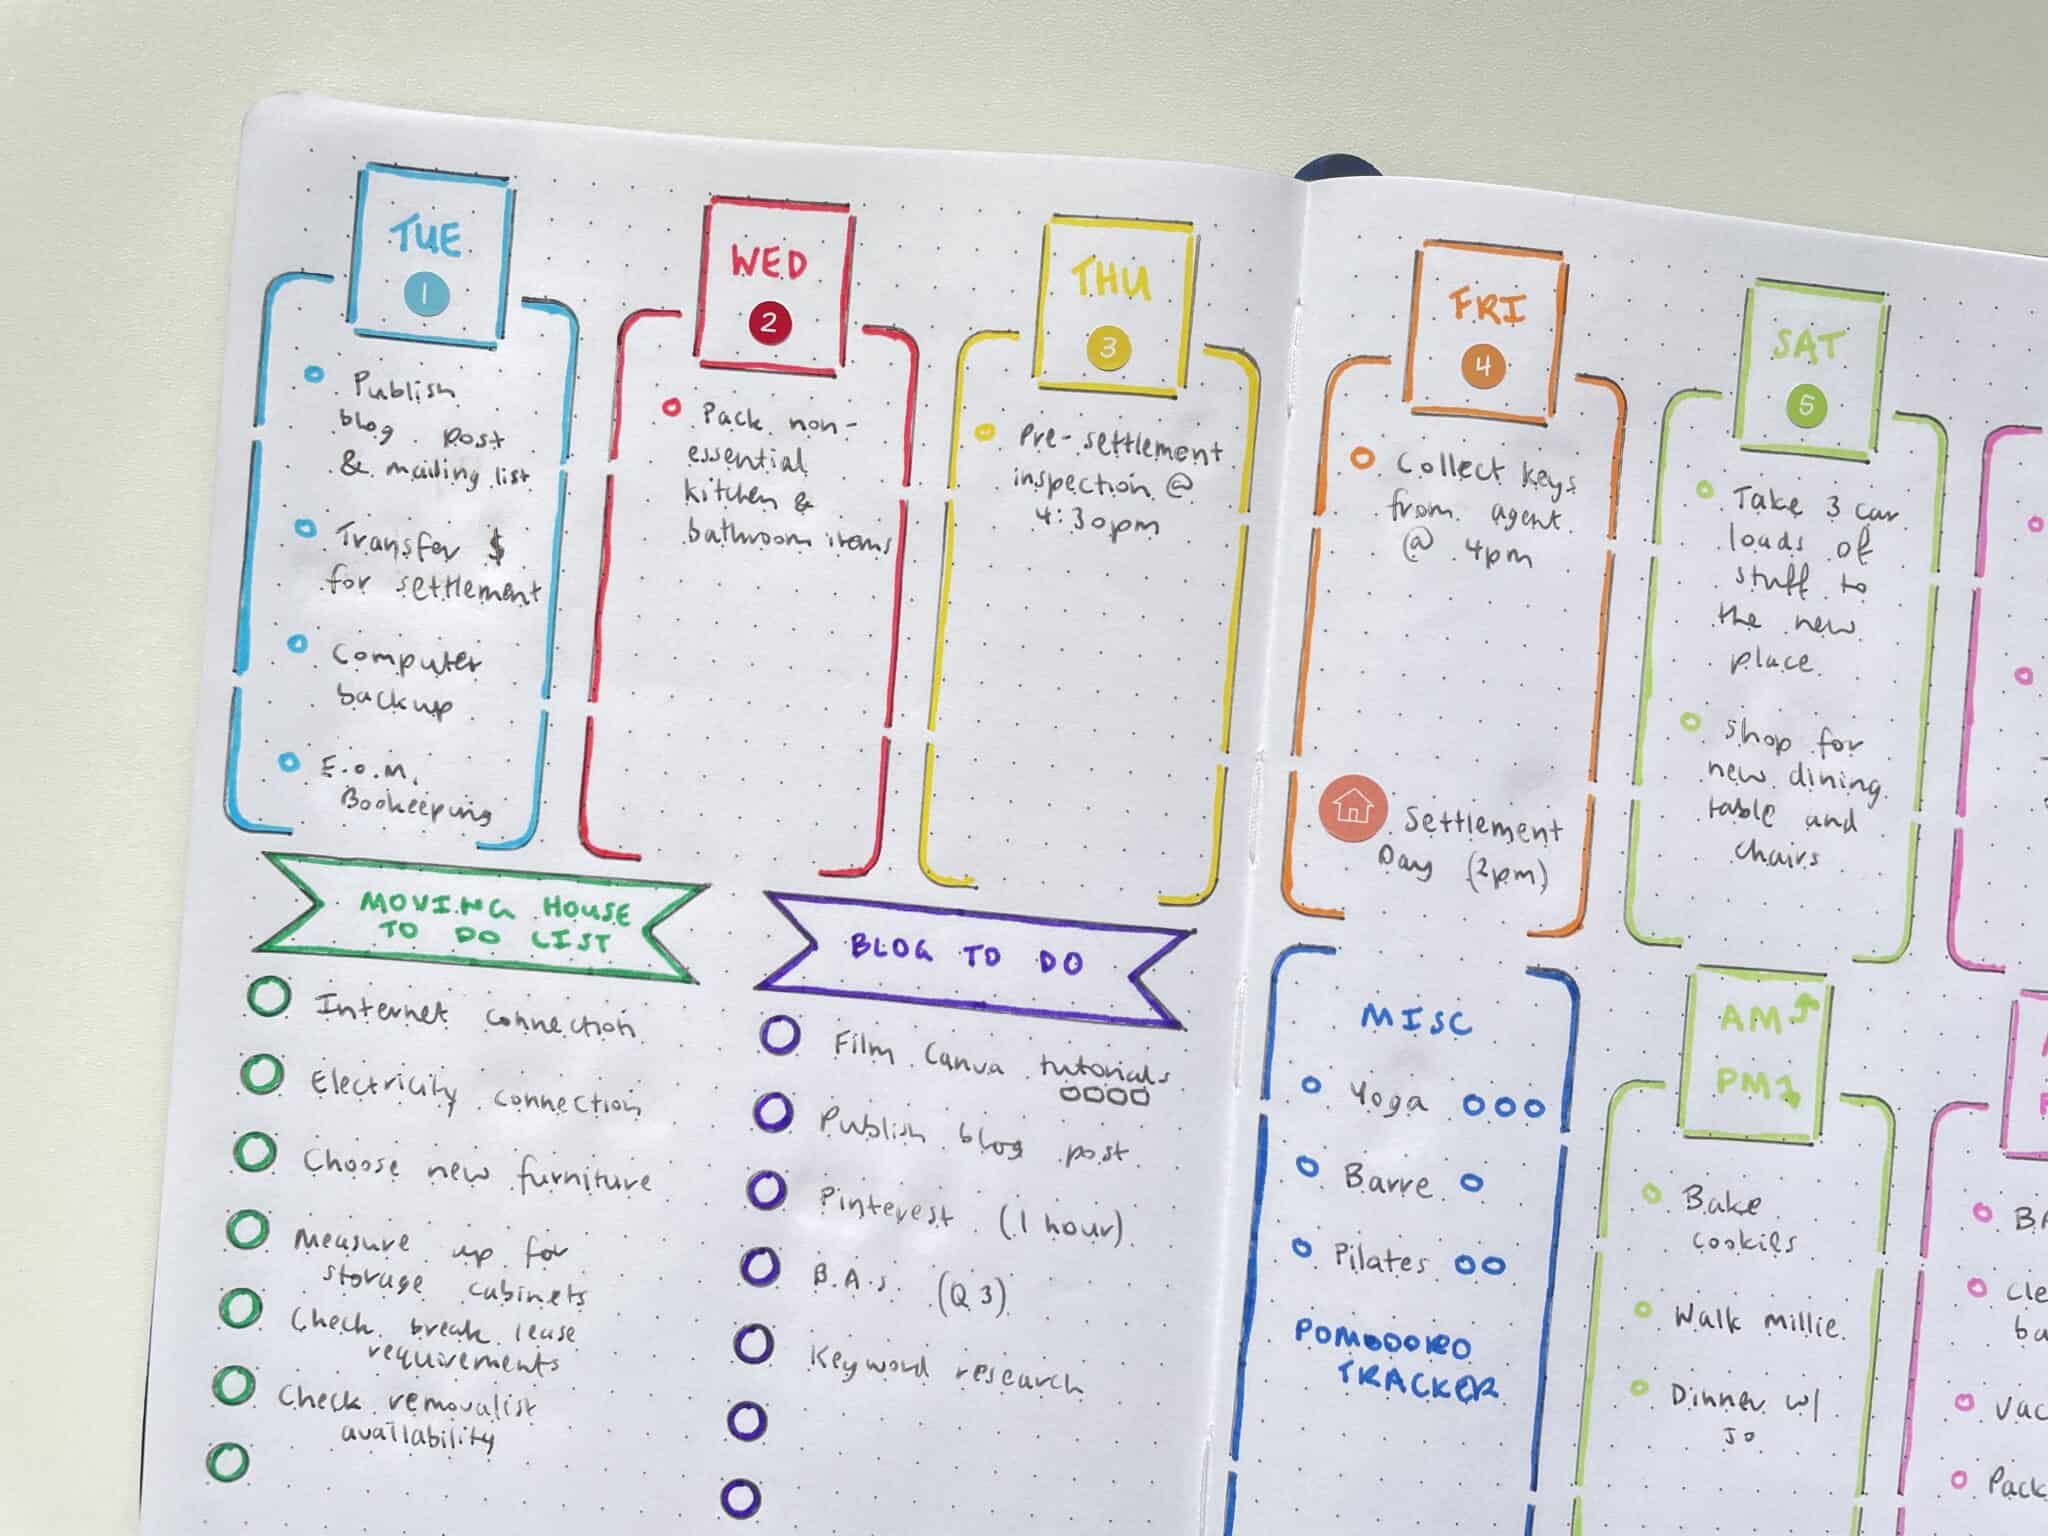 TUE
1
Publish
blog post
& mailing list
Transfer $
for settlement
Computer
backup
E.O.M.
Bookeeping
WED
2
Pack non-
essential
kitchen &
bathroom items
THU
3
Pre-settlement
inspection @
4:30pm
FRI
4
Collect keys
from agent
@ 4pm
Settlement
Day (2pm)
SAT
5
Take 3 car
loads of
stuff to
the new
place
Shop for
new dining
table and
chairs
MOVING HOUSE
TO DO LIST
Internet connection
Electricity connection
Choose new furniture
Measure up for
storage cabinets
Check break lease
requirements
Check removalist
availability
BLOG TO DO
Film Canva tutorials
Publish blog post
Pinterest (1 hour)
B.A.S. (Q3)
Keyword research
MISC
Yoga
Barre
Pilates
POMODORO
TRACKER
AM
PM
Bake
cookies
Walk millie
Dinner w/
Jo
Pack